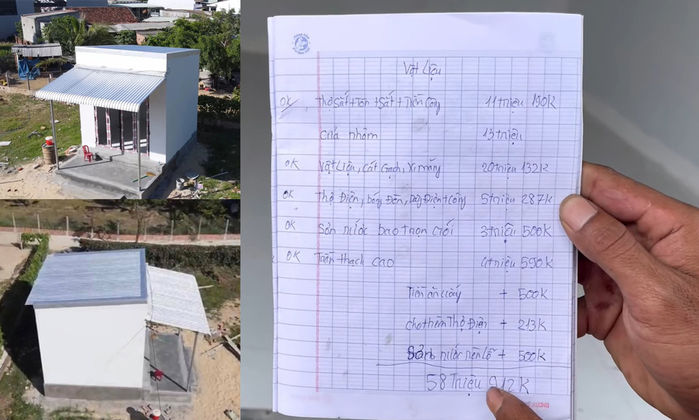 Vật Liệu
OK Thợ Sắt + Tôn + Sắt + Tiền Công 11 triệu 190K
Cửa nhôm 13 triệu
OK Vật Liệu, cát Gạch, xi măng 20 triệu 132K
OK Thợ Điện, bóng Đèn, Dây Điện + công 5 triệu 287K
OK Sơn nước bao trọn gói 3 triệu 500K
OK Trần thạch cao 4 triệu 590K
Tiền ăn uống + 500K
cho thêm Thợ Điện + 213K
Sơn nước nền + 500K
58 Triệu 912K